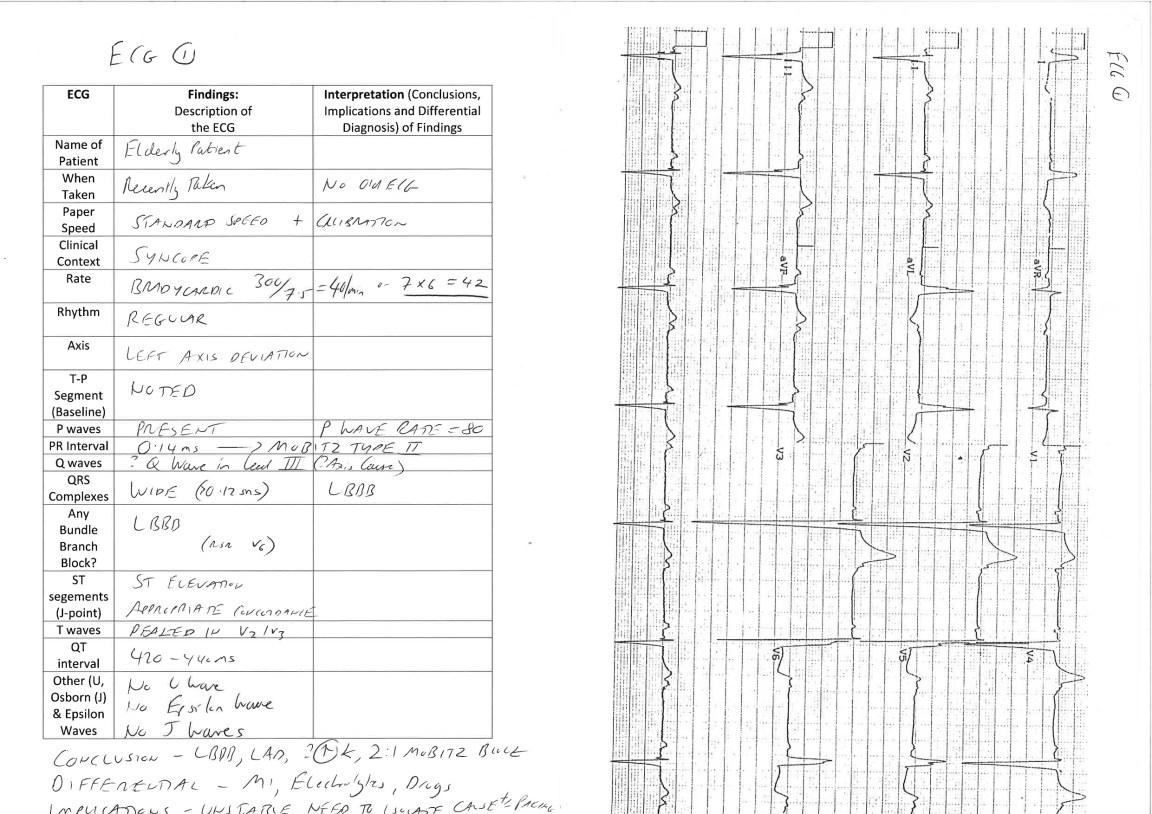 ECG ①
ECG Findings: Interpretation (Conclusions,
Description of Implications and Differential
the ECG Diagnosis) of Findings
Name of Elderly Patient
Patient
When Recently Taken No Old ECG
Taken
Paper STANDARD SPEED + CALIBRATION
Speed
Clinical SYNCOPE
Context
Rate BRADYCARDIC 300/7.5 = 40/min or 7 x 6 = 42
Rhythm REGULAR
Axis LEFT AXIS DEVIATION
T-P NOTED
Segment
(Baseline)
P waves PRESENT P WAVE RATE = 80
PR Interval 0.14ms → MOBITZ TYPE II
Q waves ? Q Wave in lead III (?Axis Cause)
QRS WIDE (>0.12ms) LBBB
Complexes
Any LBBB
Bundle (RSR V6)
Branch
Block?
ST ST ELEVATION
segements
(J-point) APPROPRIATE CONCORDANCE
T waves PEAKED IN V2/V3
QT 420-440ms
interval
Other (U, No U Wave
Osborn (J) No Epsilon Wave
& Epsilon
Waves No J Waves
CONCLUSION - LBBB, LAD, ?↑K, 2:1 MOBITZ BLOCK
DIFFERENTIAL - MI, Electrolytes, Drugs
IMPLICATIONS - UNSTABLE NEED TO ISOLATE CAUSE +/- PACING
ECG ①
I
aVR
V1
V4
II
aVL
V2
V5
III
aVF
V3
V6